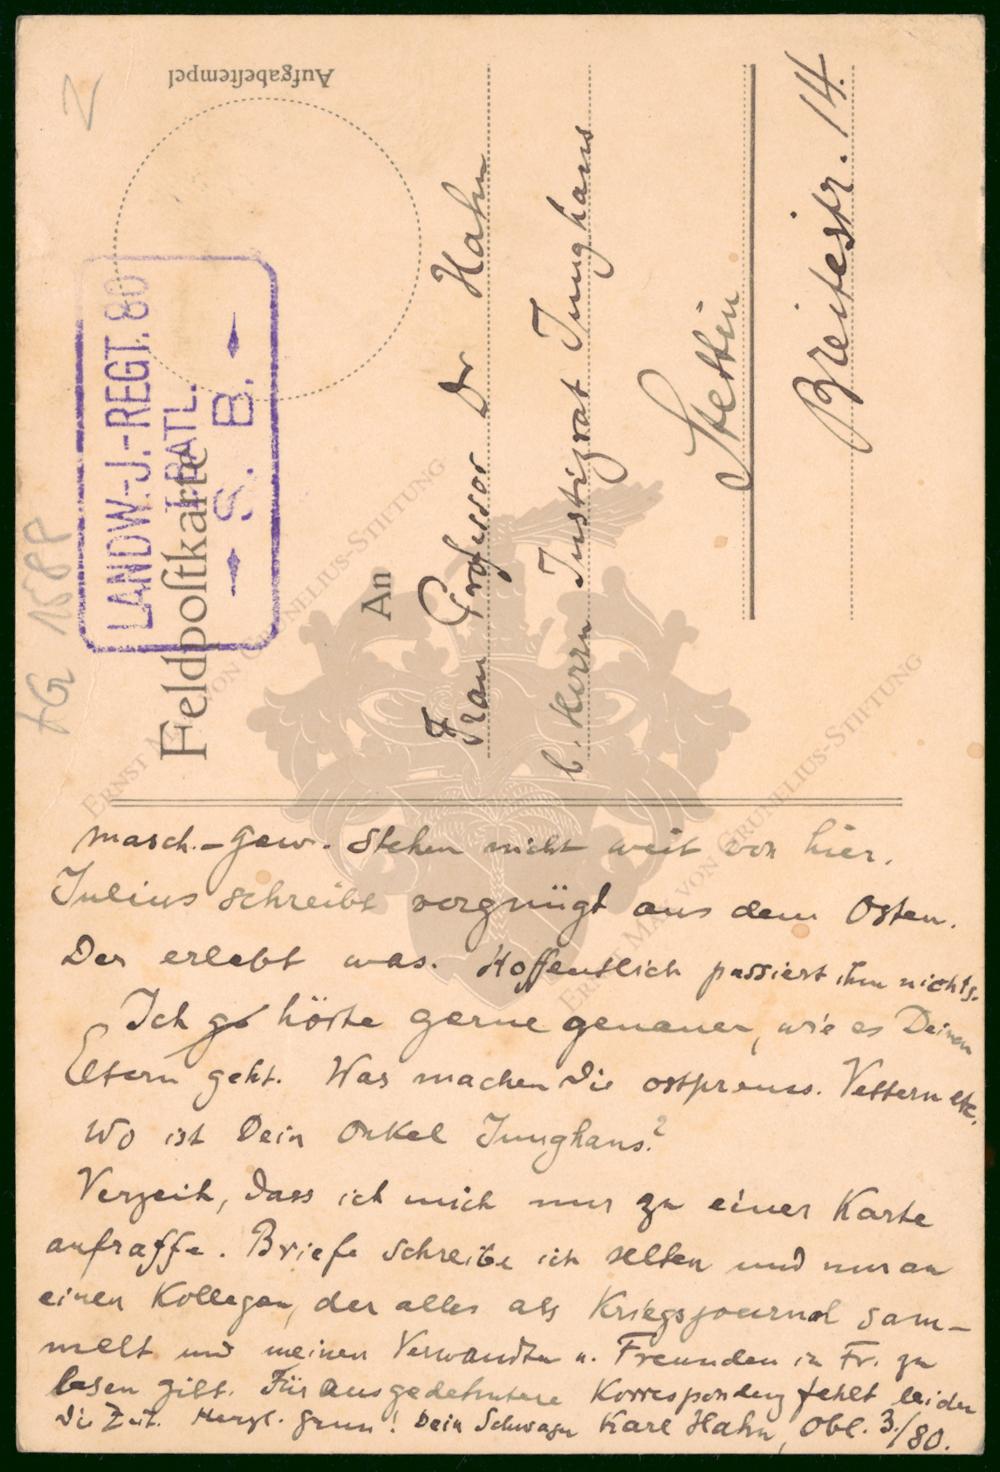 Aufgabeſtempel
Z
LANDW.-J.-REGT. 80
I. BATL.
S. B.
Feldpoſtkarte
AG 158P
An
Frau Professor Dr Hahn
b. Herrn Justizrat Junghans
Stettin
Breitestr. 14.
Masch.-Gew. stehen nicht weit von hier.
Julius schreibt vergnügt aus dem Osten.
Der erlebt was. Hoffentlich passiert ihm nichts.
Ich hörte gerne genauer, wie es Deinen
Eltern geht. Was machen die ostpreuss. Vettern etc.
Wo ist Dein Onkel Junghans?
Verzeih, dass ich mich nur zu einer Karte
aufraffe. Briefe schreibe ich selten und nur an
einen Kollegen, der alles als Kriegsjournal sam-
melt und meinen Verwandten u. Freunden in Fr. zu
lesen gibt. Für ausgedehntere Korrespondenz fehlt leider
die Zeit. Herzl. Gruss! Dein Schwager Karl Hahn, Obl. 3./80.
ERNST MAX VON GRUNELIUS-STIFTUNG
ERNST MAX VON GRUNELIUS-STIFTUNG